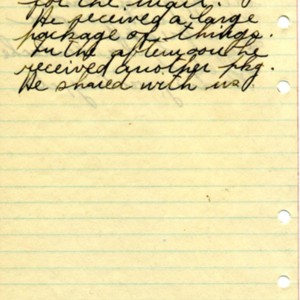 for the mail.
He received a large
package of things.
In the afternoon he
received another pkg.
He shared with us